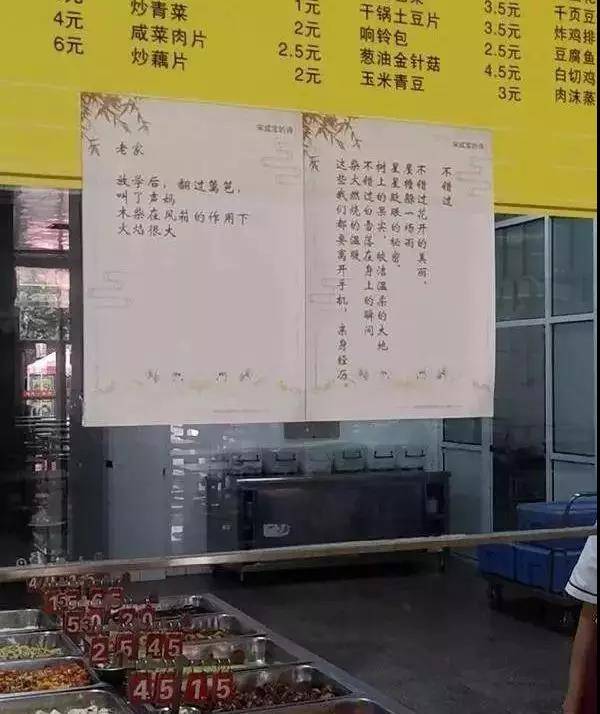 3.5元 千页豆
1元 干锅土豆片 3.5元 炸鸡排
炒青菜 2元 响铃包 2.5元 豆腐鱼
4元 咸菜肉片 2.5元 葱油金针菇 4.5元 白切鸡
6元 炒藕片 2元 玉米青豆 3元 肉沫蒸
老家
放学后，翻过篱笆，
叫了声妈
木柴在风箱的作用下
火焰很大
不错过
不错过花开的美丽，
屋檐躲一场雨
星星眨眼的秘密。
树上的果实，皎洁温柔的大地
不错过白雪落在身上的瞬间
柴火燃烧的温暖
这些我们都要离开手机，亲身经历。